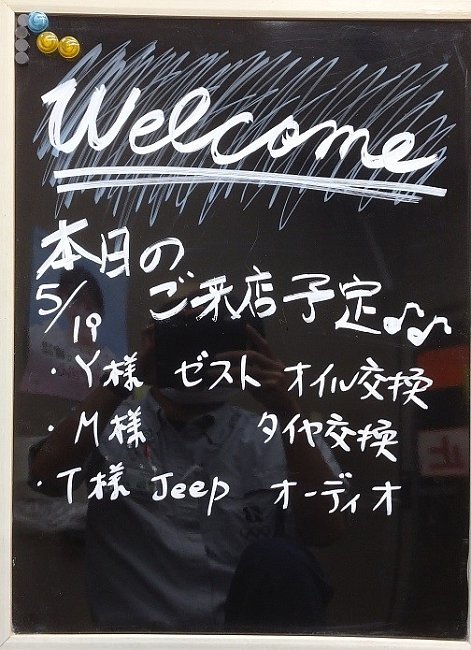 Welcome
本日の
5/19 ご来店予定♪♪
・Y様 ゼスト オイル交換
・M様 タイヤ交換
・T様 Jeep オーディオ